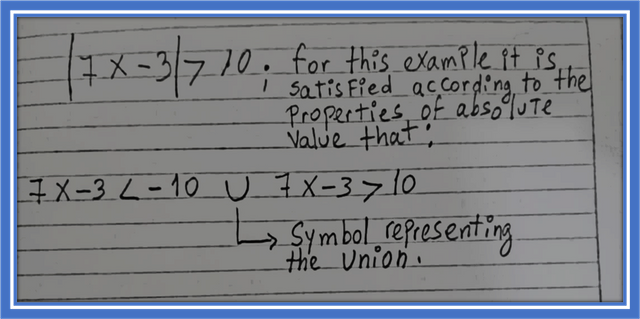 |7x-3|>10; for this example it is
satisfied according to the
properties of absolute
value that:
7x-3<-10 ∪ 7x-3>10
↳ Symbol representing
the union.